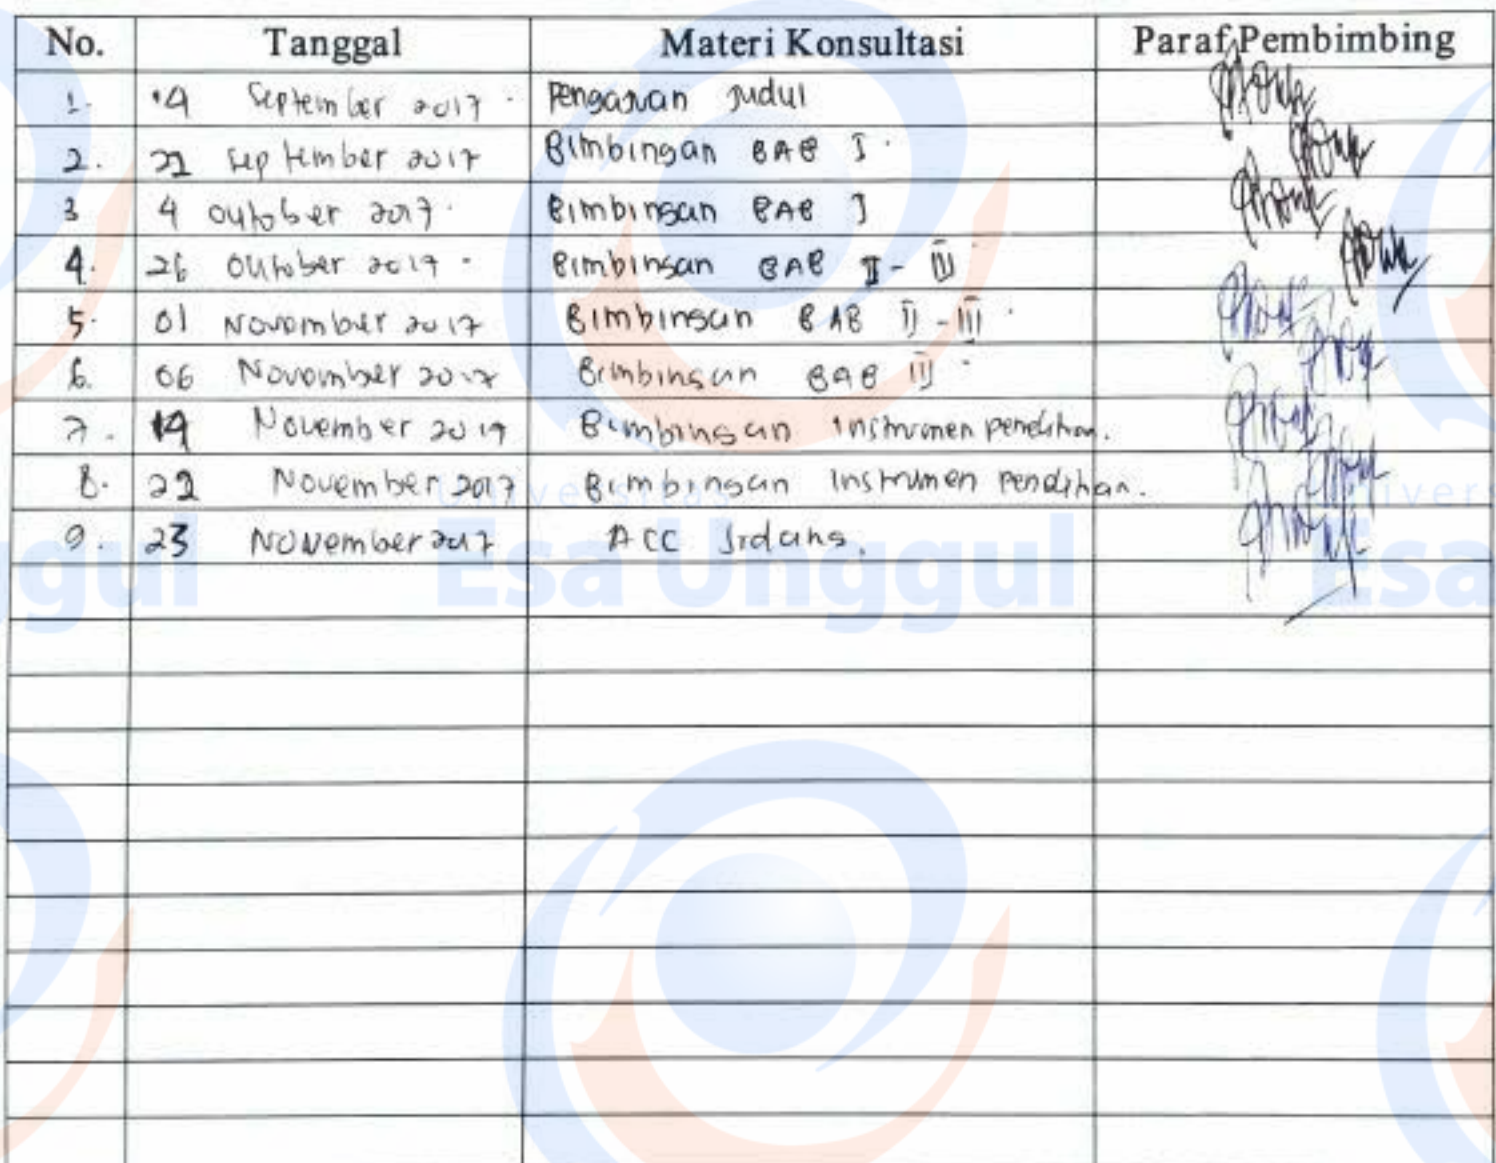 No. Tanggal Materi Konsultasi Paraf Pembimbing
1. 14 September 2017 Pengajuan Judul
2. 22 September 2017 Bimbingan BAB I
3 4 Oktober 2017 Bimbingan BAB I
4. 26 Oktober 2017 Bimbingan BAB II - III
5. 01 November 2017 Bimbingan BAB II - III
6. 06 November 2017 Bimbingan BAB III
7. 14 November 2017 Bimbingan Instrumen penelitian.
8. 22 November 2017 Bimbingan Instrumen penelitian.
9. 23 November 2017 ACC Sidang.
Universitas Univers
ggul Esa Unggul Esa